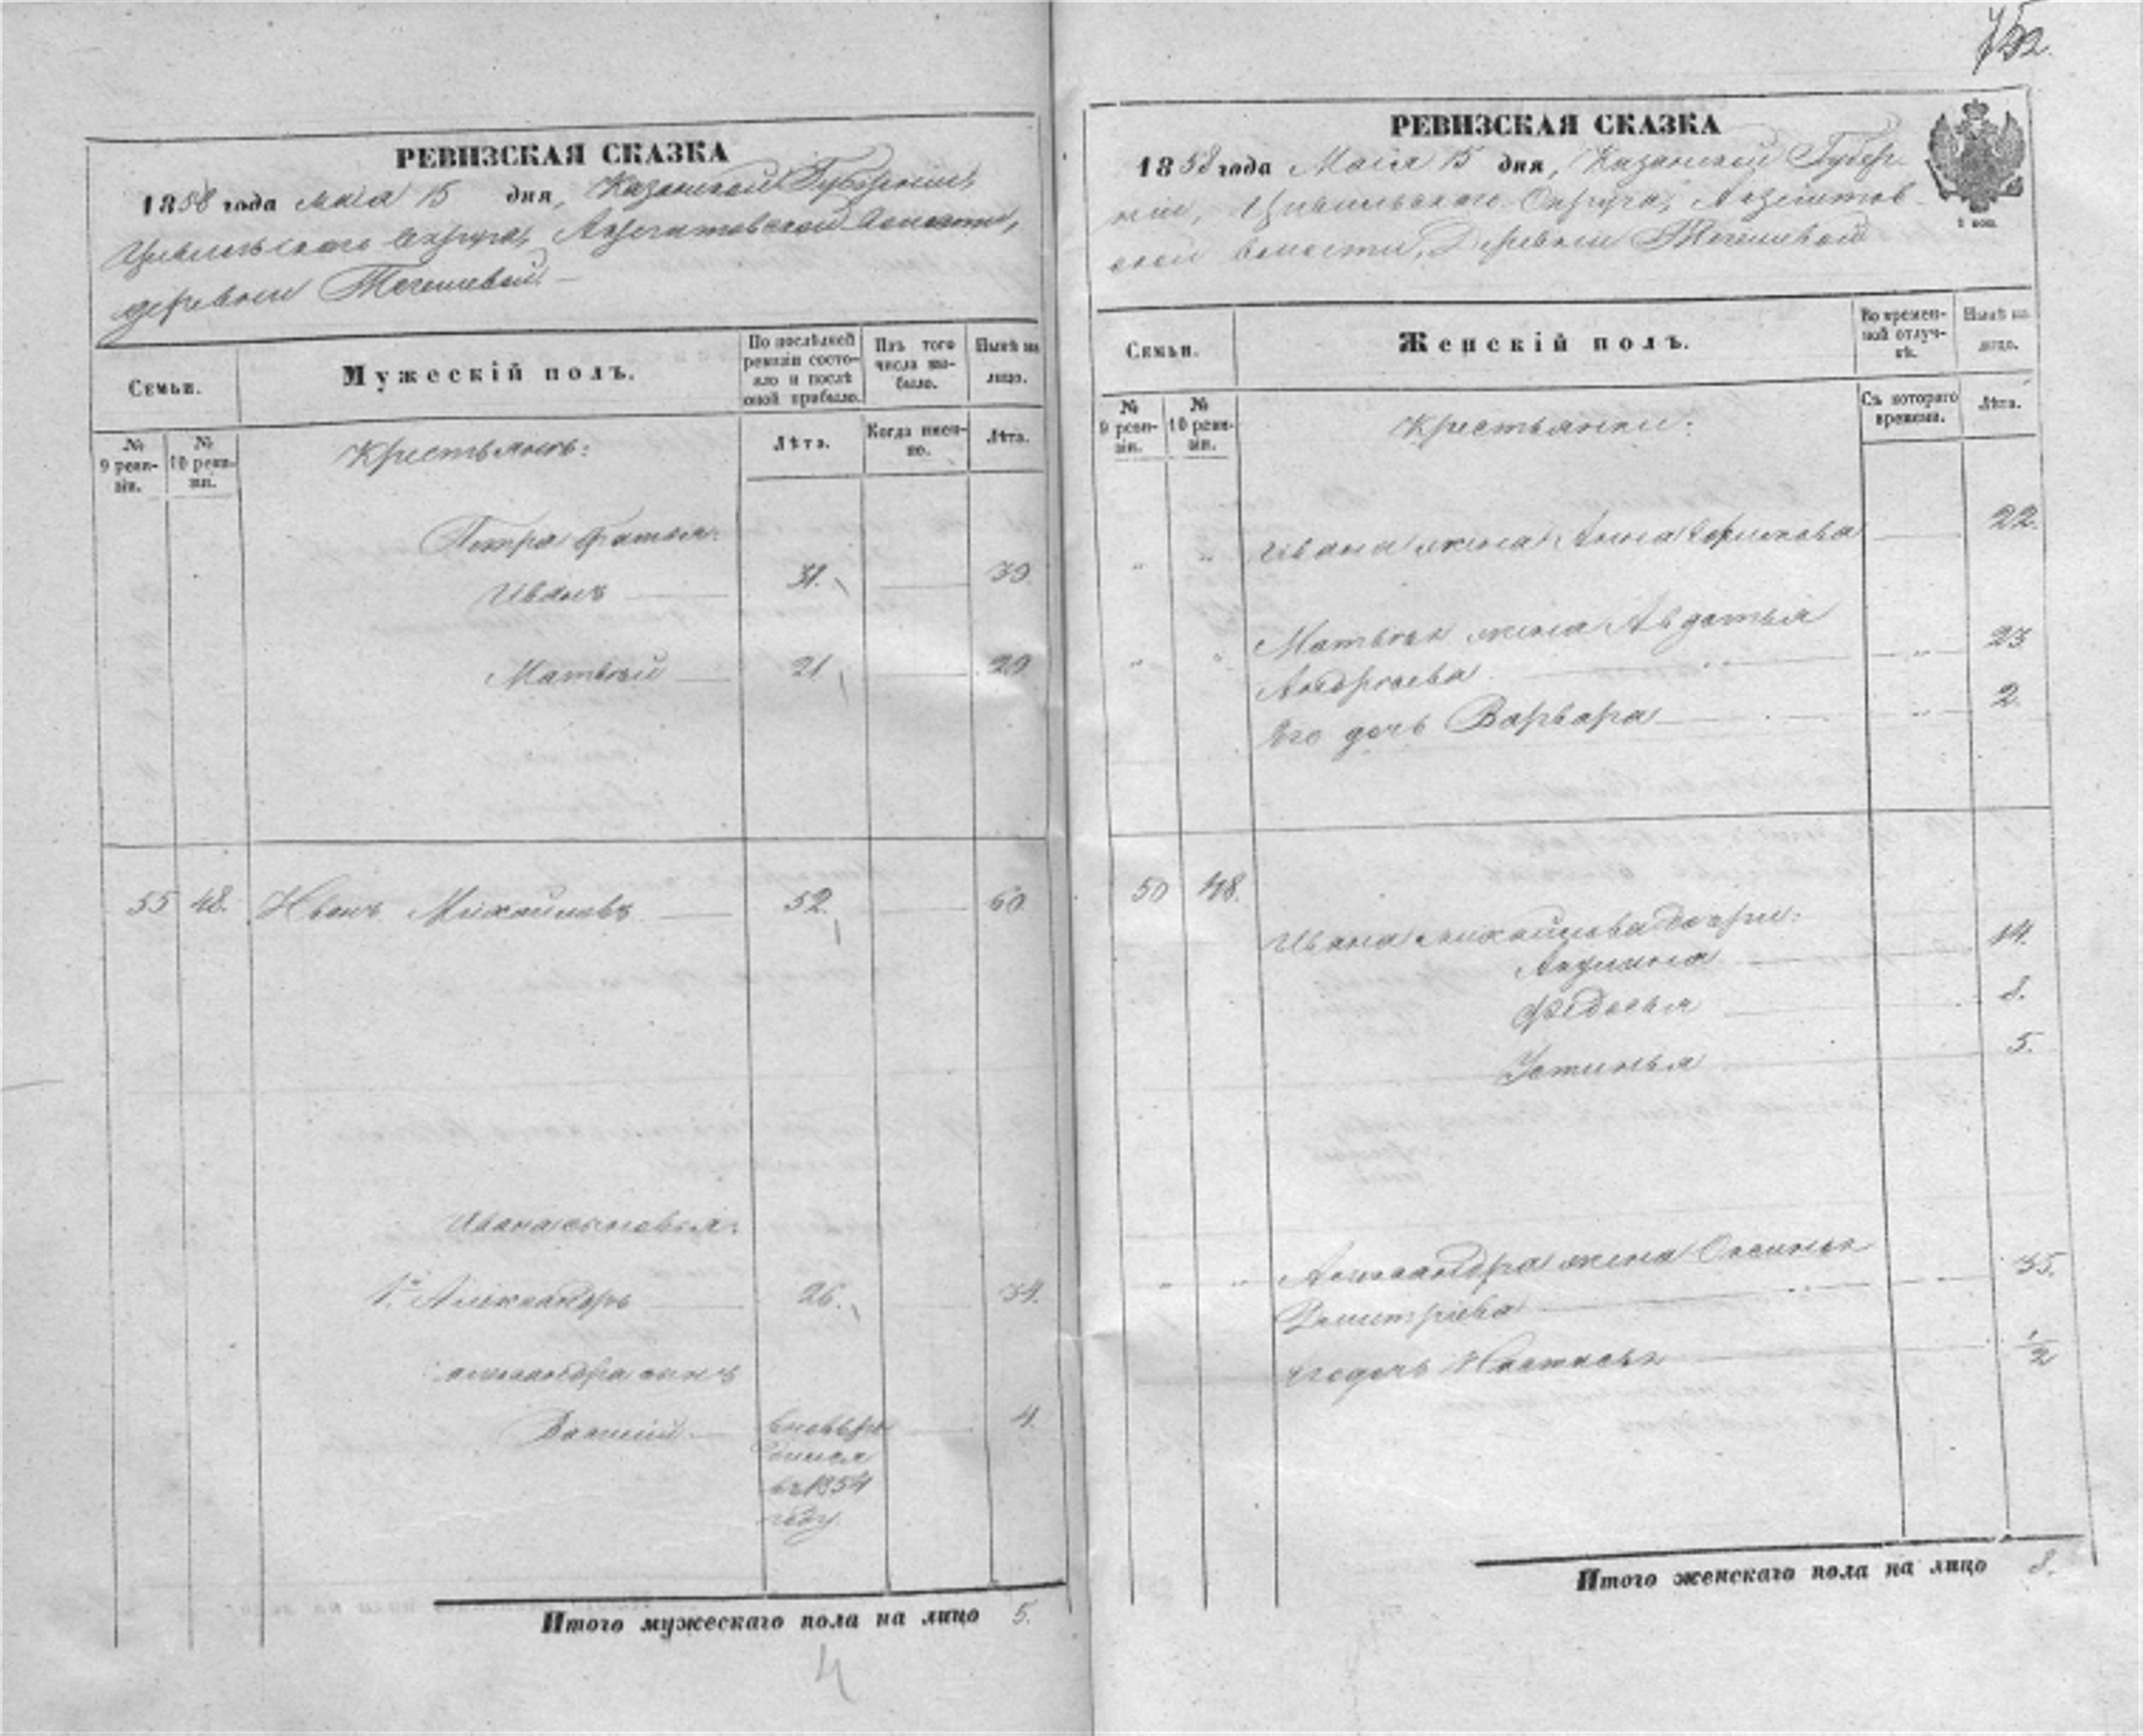 РЕВИЗСКАЯ СКАЗКА
1858 года мая 15 дня, Казанской Губернии,
Цивильскаго Округа, волости,
деревни
Семьи.
Мужескій полъ.
По послѣдней ревизіи состояло и послѣ оной прибыло.
Изъ того числа выбыло.
Нынѣ на лицо.
№ 9 ревизіи.
№ 10 ревизіи.
Крестьянъ:
Лѣта.
Когда именно.
Лѣта.
Петра братья:
Иванъ 31. 39
Матвѣй 21. 29
55 48. Иванъ Михайловъ 52. 60
Ивана сыновья:
1й Александръ 26. 34.
Александра сынъ
вновь ро 4.
дился
въ 1854
году
Итого мужескаго пола на лицо 5.
4
РЕВИЗСКАЯ СКАЗКА
1858 года Маія 15 дня, Казанской Губер-
ніи, Цивильскаго Округа,
ской волости, Деревни
Семьи.
Женскій полъ.
Во временной отлучкѣ.
Нынѣ на лицо.
№ 9 ревизіи.
№ 10 ревизіи.
Крестьянки:
Съ котораго времени.
Лѣта.
" " Ивана жена Анна 22.
" " Матвѣя жена Авдотья
Андреева " 23
Его дочь Варвара " 2.
50 48.
Ивана Михайлова дочери:
Акулина 14.
Федосья 8.
Устинья 5.
" " Александра жена
Дмитріева 35.
Его дочь Настасья 1/2
Итого женскаго пола на лицо 8.